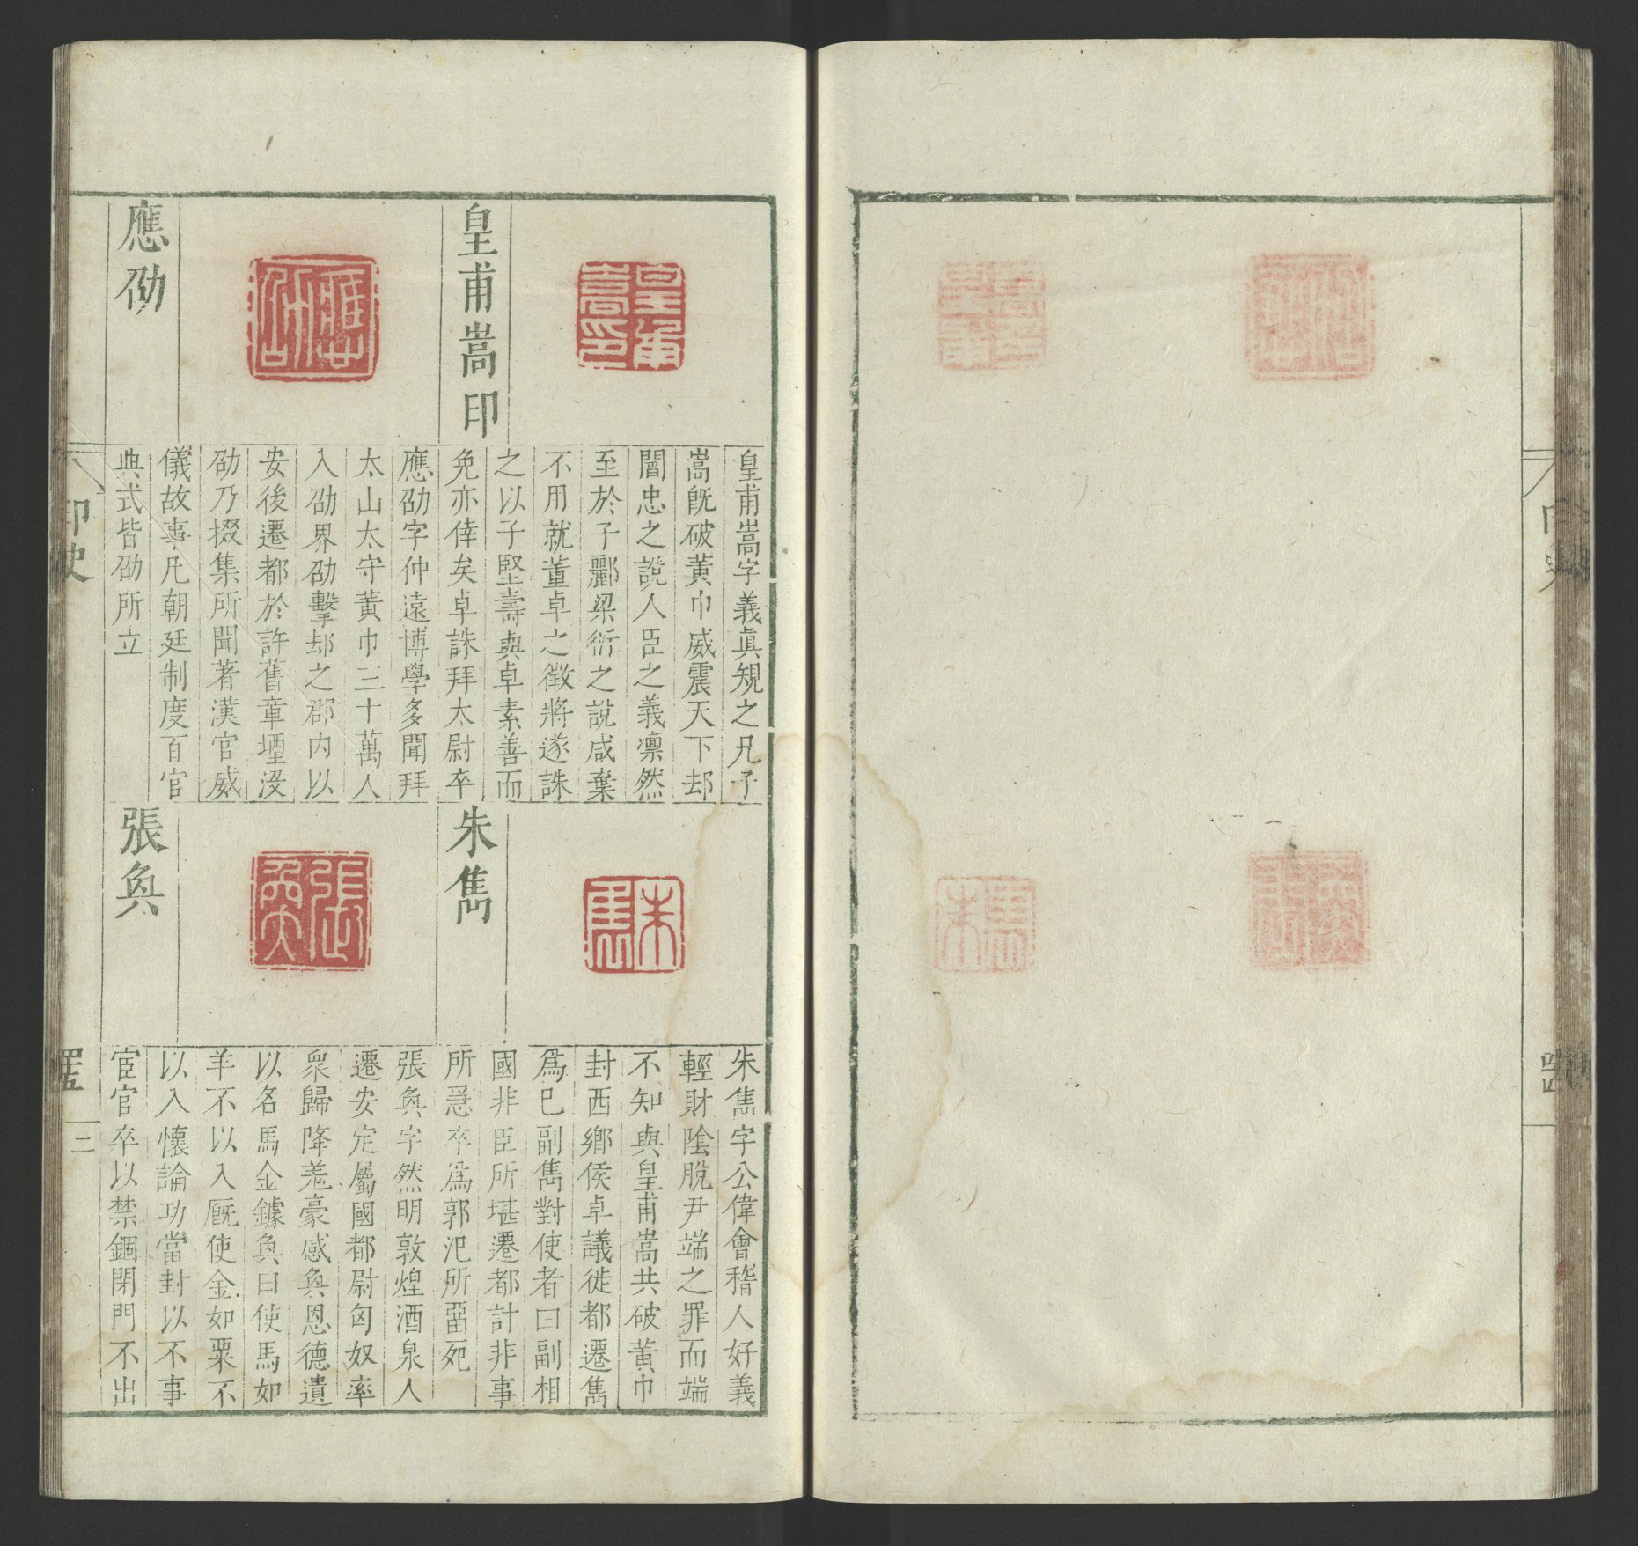 皇甫嵩印
皇甫嵩字義眞規之兄子
嵩旣破黃巾威震天下却
閻忠之說人臣之義凛然
至於子酈梁衍之說咸棄
不用就董卓之徵將遂誅
之以子堅壽與卓素善而
免亦倖矣卓誅拜太尉卒
應劭
應劭字仲遠博學多聞拜
太山太守黃巾三十萬人
入劭界劭擊却之郡内以
安後遷都於許舊章堙沒
劭乃掇集所聞著漢官威
儀故事凡朝廷制度百官
典式皆劭所立
朱雋
朱雋字公偉會稽人好義
輕財陰脫尹端之罪而端
不知與皇甫嵩共破黃巾
封西鄉侯卓議徙都遷雋
爲已副雋對使者曰副相
國非臣所堪遷都計非事
所急卒爲郭汜所畱死
張奐
張奐字然明敦煌酒泉人
遷安定屬國都尉匈奴率
衆歸降羌豪感奐恩德遺
以名馬金鐻奐曰使馬如
羊不以入厩使金如粟不
以入懷論功當封以不事
宦官卒以禁錮閉門不出
印史
三